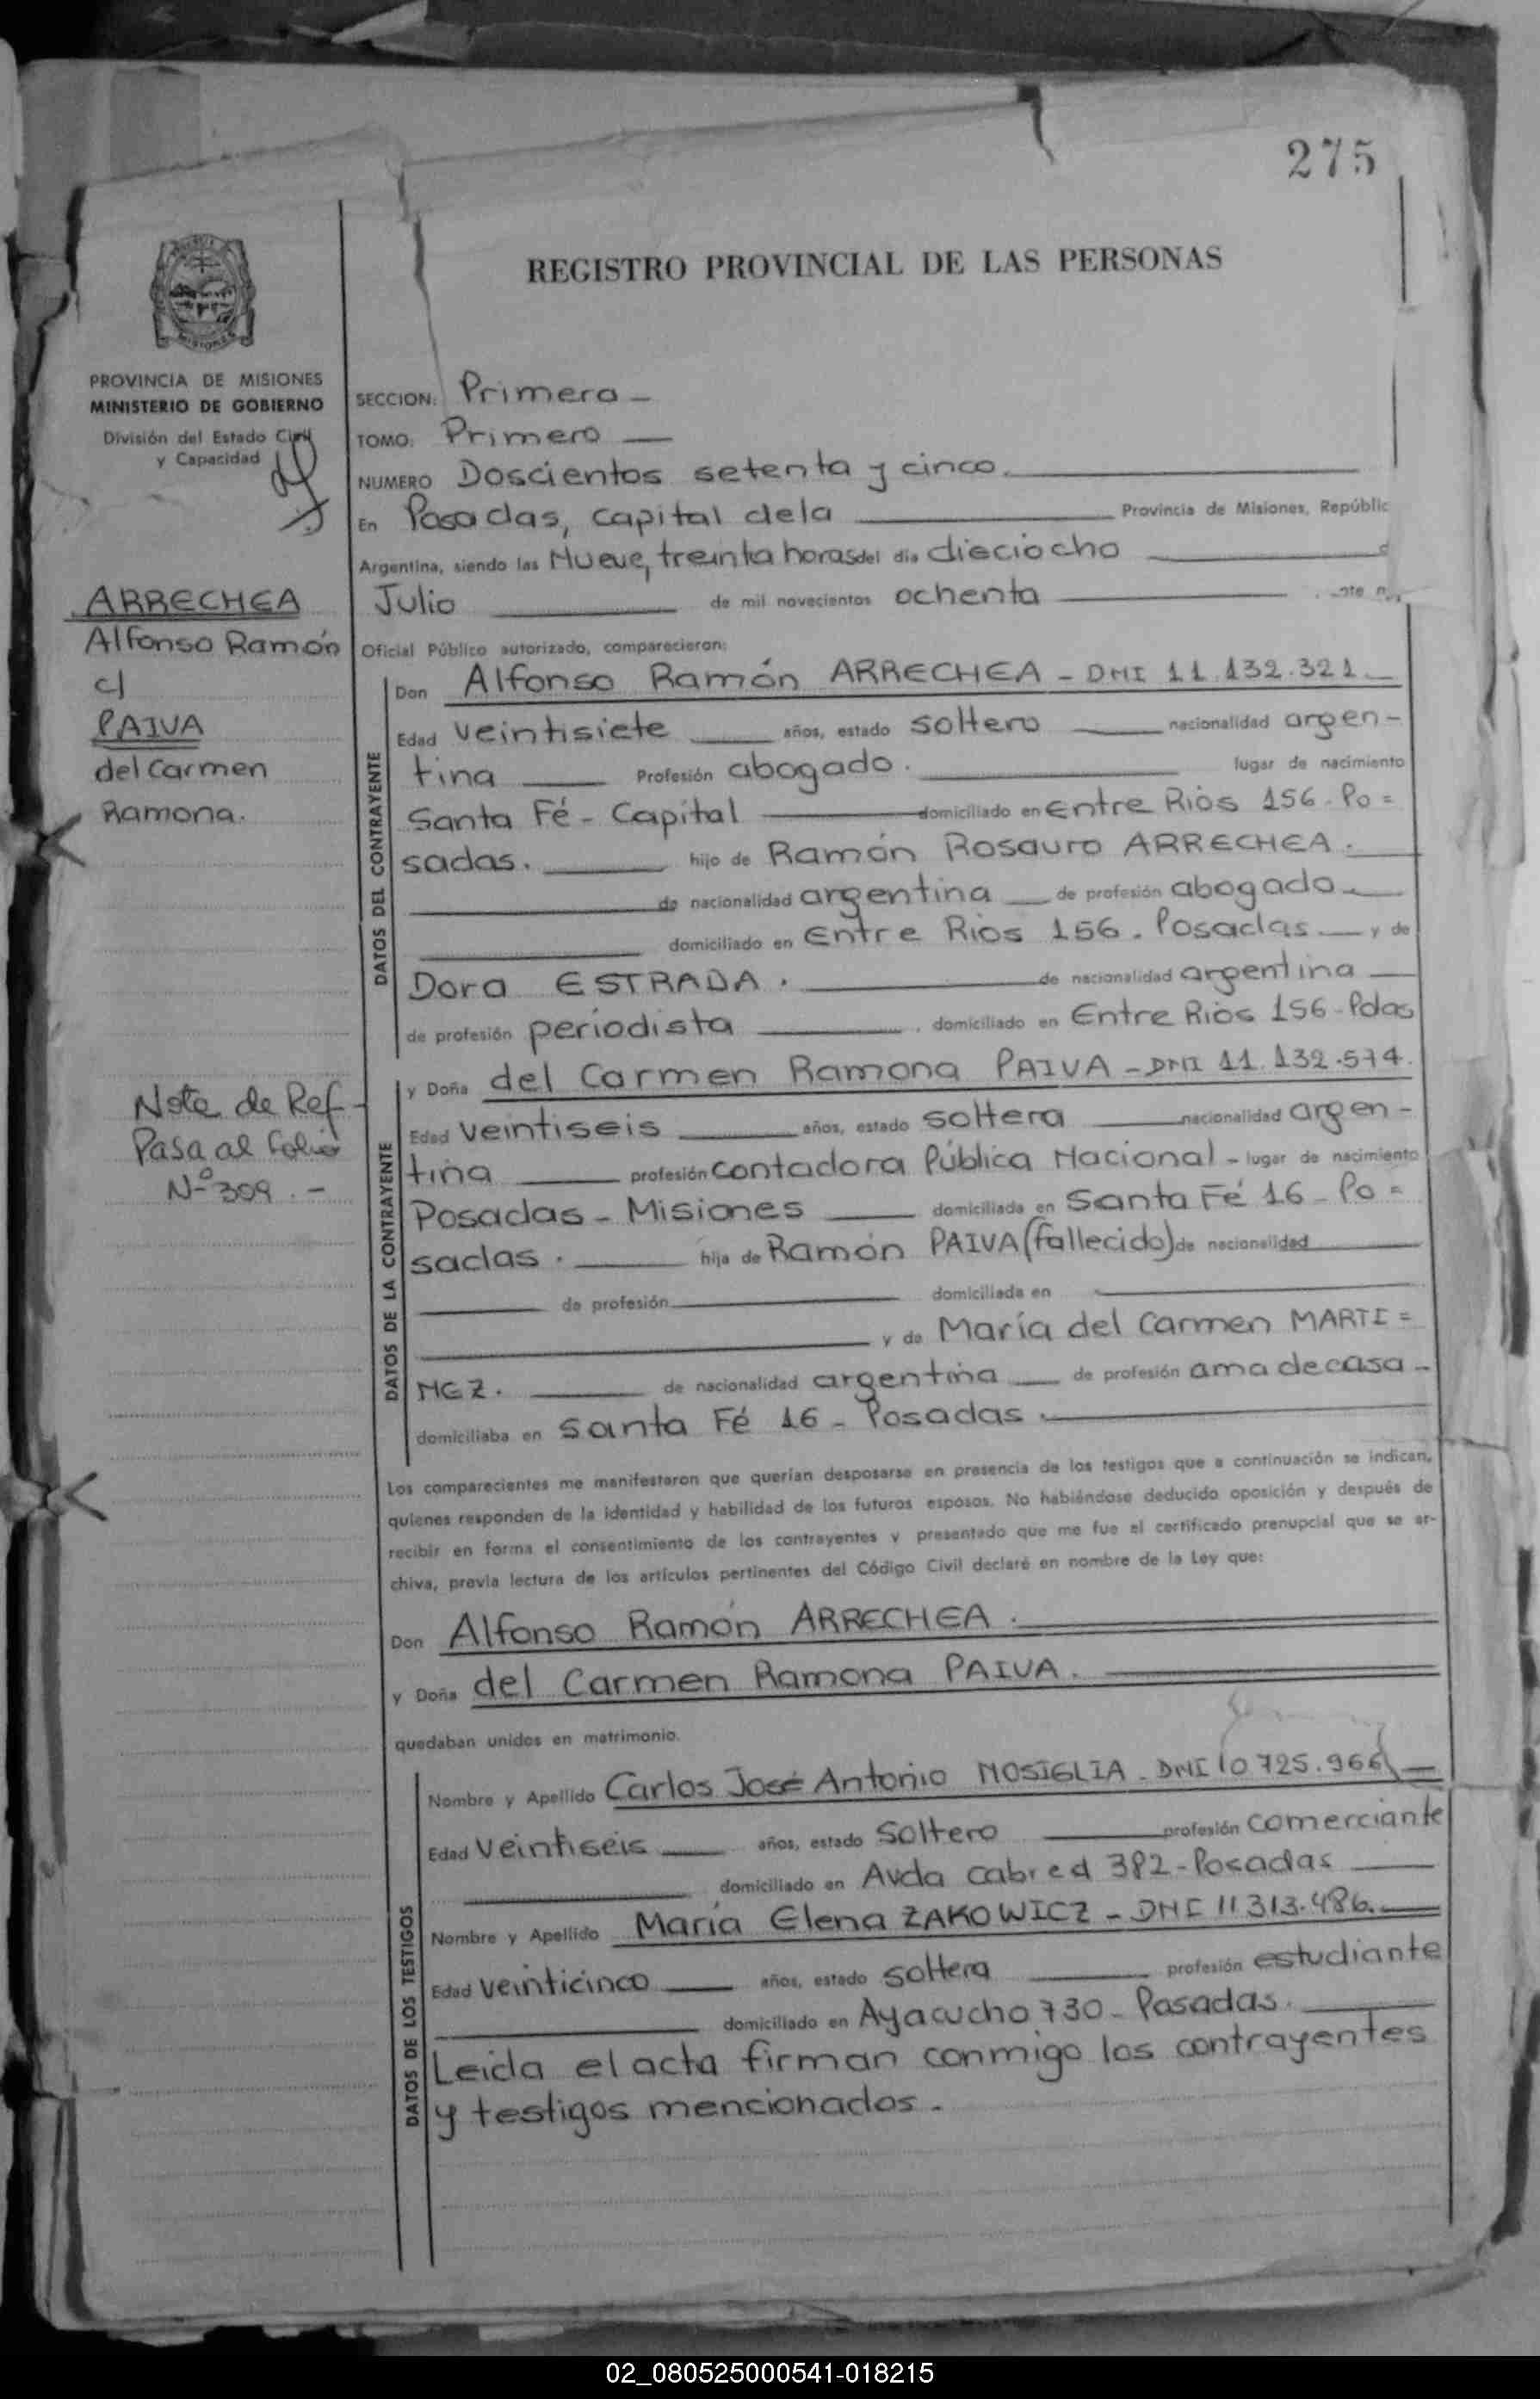 275
REGISTRO PROVINCIAL DE LAS PERSONAS
PROVINCIA DE MISIONES
MINISTERIO DE GOBIERNO
División del Estado Civil
y Capacidad
ARRECHEA
Alfonso Ramón
c/
PAIVA
del Carmen
Ramona.
Nota de Ref-
Pasa al Folio
Nº 309.-
SECCION: Primera -
TOMO: Primero
NUMERO Doscientos setenta y cinco.
En Posadas, capital de la Provincia de Misiones, Repúblic
Argentina, siendo las Nueve, treinta horas del día dieciocho
Julio de mil novecientos ochenta
Oficial Público autorizado, comparecieron:
DATOS DEL CONTRAYENTE
Don Alfonso Ramón ARRECHEA - DNI 11.132.321
Edad veintisiete años, estado soltero nacionalidad argen-
tina Profesión abogado. lugar de nacimiento
Santa Fé - Capital domiciliado en Entre Ríos 156. Po=
sadas. hijo de Ramón Rosauro ARRECHEA.
de nacionalidad argentina de profesión abogado.
domiciliado en Entre Rios 156. Posadas y de
Dora ESTRADA. de nacionalidad argentina
de profesión periodista domiciliado en Entre Rios 156-Pdas
DATOS DE LA CONTRAYENTE
y Doña del Carmen Ramona PAIVA - DNI 11.132.574.
Edad veintiseis años, estado soltera nacionalidad argen-
tina profesión contadora Pública Nacional - lugar de nacimiento
Posadas - Misiones domiciliada en Santa Fé 16 - Po=
sadas. hija de Ramón PAIVA (fallecido) de nacionalidad
de profesión domiciliada en
y de María del Carmen MARTI=
NEZ. de nacionalidad argentina de profesión ama de casa -
domiciliaba en Santa Fé 16 - Posadas.
Los comparecientes me manifestaron que querían desposarse en presencia de los testigos que a continuación se indican,
quienes responden de la identidad y habilidad de los futuros esposos. No habiéndose deducido oposición y después de
recibir en forma el consentimiento de los contrayentes y presentado que me fue el certificado prenupcial que se ar-
chiva, previa lectura de los artículos pertinentes del Código Civil declaré en nombre de la Ley que:
Don Alfonso Ramón ARRECHEA.
y Doña del Carmen Ramona PAIVA.
quedaban unidos en matrimonio.
DATOS DE LOS TESTIGOS
Nombre y Apellido Carlos José Antonio NOSIGLIA - DNI 10 725.966
Edad Veintiseis años, estado Soltero profesión comerciante
domiciliado en Avda Cabred 382 - Posadas
Nombre y Apellido María Elena ZAKOWICZ - DNI 11 313.486.
Edad veinticinco años, estado soltera profesión estudiante
domiciliado en Ayacucho 730 - Posadas.
Leida el acta firman conmigo los contrayentes
y testigos mencionados.
02_080525000541-018215